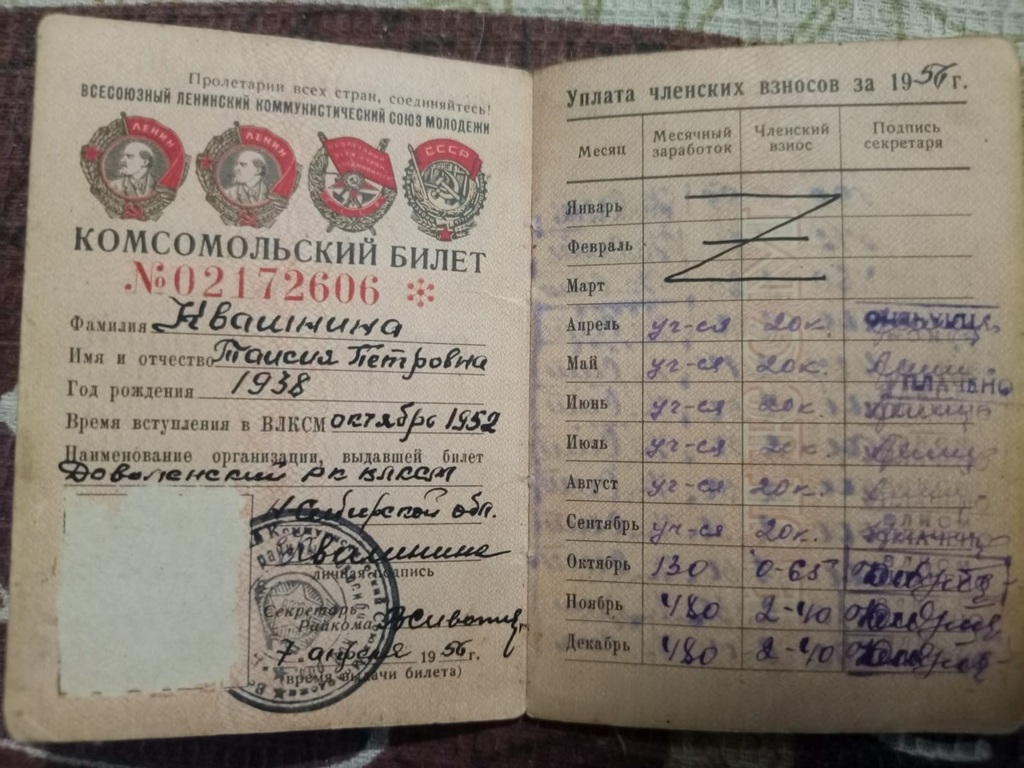 Пролетарии всех стран, соединяйтесь!
ВСЕСОЮЗНЫЙ ЛЕНИНСКИЙ КОММУНИСТИЧЕСКИЙ СОЮЗ МОЛОДЕЖИ
ЛЕНИН ЛЕНИН СССР
КОМСОМОЛЬСКИЙ БИЛЕТ
№02172606
Фамилия Квашнина
Имя и отчество Таисия Петровна
Год рождения 1938
Время вступления в ВЛКСМ октябрь 1952
Наименование организации, выдавшей билет
Доволенский РК ВЛКСМ
Н Сибирской обл.
Квашнина
личная подпись
Секретарь
Райкома
7 апреля 1956 г.
(время выдачи билета)
Уплата членских взносов за 1956 г.
Месяц Месячный заработок Членский взнос Подпись секретаря
Январь
Февраль
Март
Апрель уч-ся 20к.
Май уч-ся 20к.
Июнь уч-ся 20к.
Июль уч-ся 20к.
Август уч-ся 20к.
Сентябрь уч-ся 20к.
Октябрь 130 0-65
Ноябрь 480 2-40
Декабрь 480 2-40